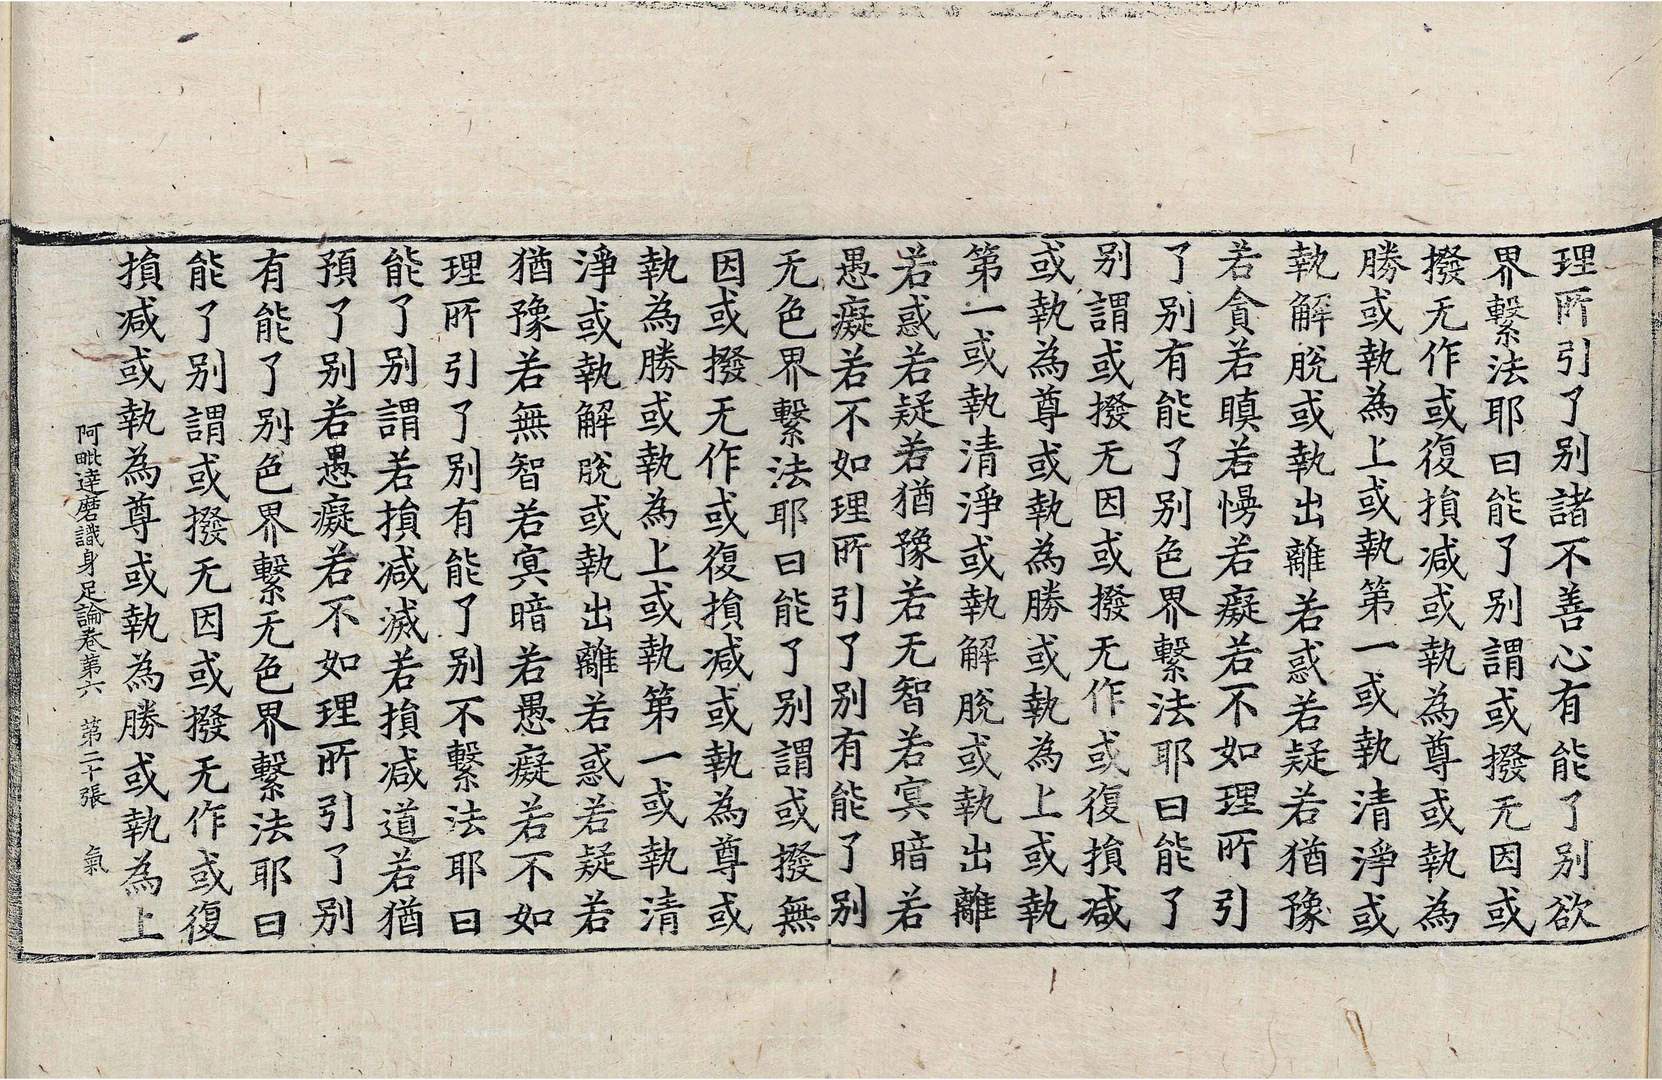 理所引了别諸不善心有能了别欲
界繫法耶曰能了别謂或撥无因或
撥无作或復損减或執為尊或執為
勝或執為上或執第一或執清淨或
執解脫或執出離若惑若疑若猶豫
若貪若瞋若慢若癡若不如理所引
了别有能了别色界繫法耶曰能了
别謂或撥无因或撥无作或復損减
或執為尊或執為勝或執為上或執
第一或執清淨或執解脫或執出離
若惑若疑若猶豫若无智若㝠暗若
愚癡若不如理所引了别有能了别
无色界繫法耶曰能了别謂或撥無
因或撥无作或復損减或執為尊或
執為勝或執為上或執第一或執清
淨或執解脫或執出離若惑若疑若
猶豫若無智若㝠暗若愚癡若不如
理所引了别有能了别不繫法耶曰
能了别謂若損减滅若損减道若猶
預了别若愚癡若不如理所引了别
有能了别色界繫无色界繫法耶曰
能了别謂或撥无因或撥无作或復
損减或執為尊或執為勝或執為上
阿毗達磨識身足論卷第六 第二十張 氣